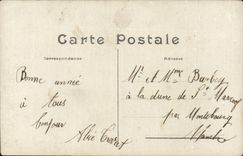 Carte Postale
Correspondance
Adresse
Bonne année
à tous
bonjour
Mr et Mme Barbey
à la dune de St Marcouf
par Montebourg
Manche